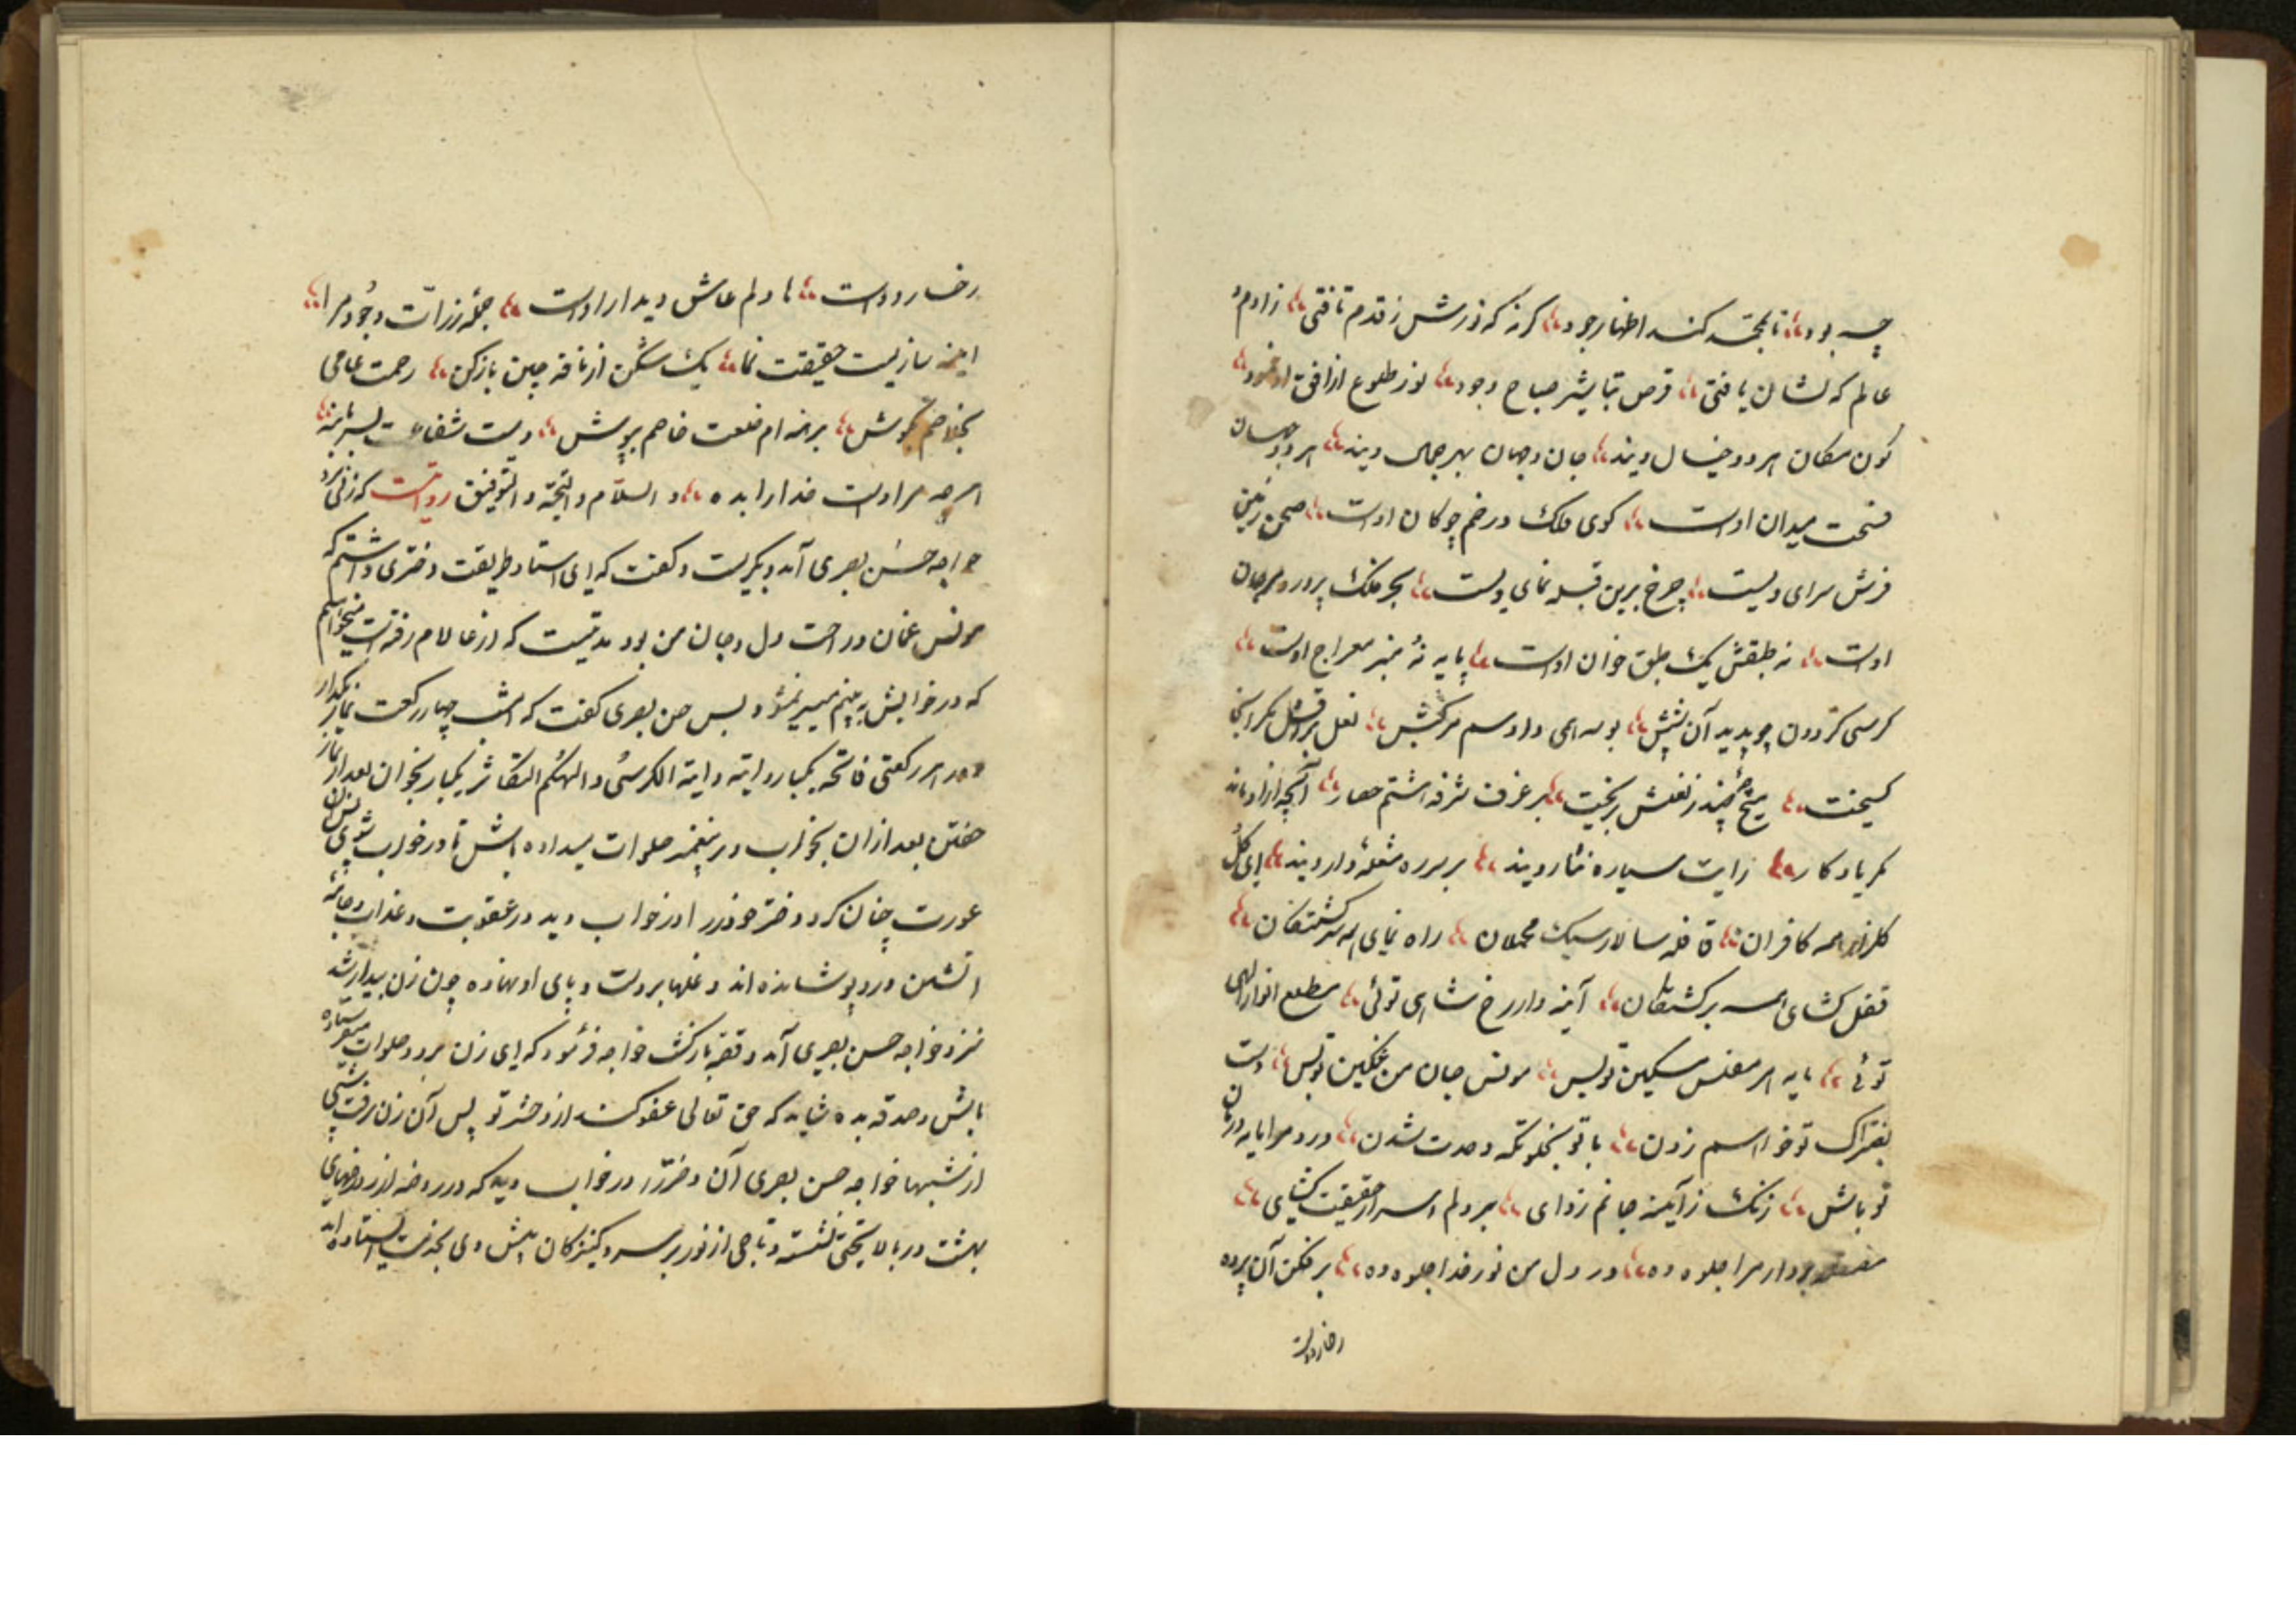 چه بود تا بخته کند اظهار جود کر نه که نورش ز قدم تافتی زادم و
عالم که نشان یافتی قرص تباشیر صباح وجود نور طلوع از افق او نمود
کون مکان هر دو خیال ویند جان و جهان بهر جمال ویند هر دو جهان
فسحت میدان اوست کوی فلک در خم چوکان اوست صحن زمین
فرش سرای ویست چرخ برین قبه نمای ویست بحر فلک پرور و مرجان
اوست نه طبقش یک طبق خوان اوست پایه نه منبر معراج اوست
کرسی کردون چو بدید آن بوسه همی داد سم مرکبش نعل براقش
کسیخت میخ چند ز نعلش بریخت بر غرف شرفه هشتم حصار آنچه ازو ماند
بر یادکار زایت سیاره نثار ویند بر سر ره مشعله دار ویند ای کل
کلزار همه کافران قافله سالار سبک محملان راه نمای همه سرکشتکان
قفل کشای همه برکشتکان آینه دار رخ شاهی توئی مطلع انوار الهی
توئی مایه هر مفلس مسکین تویس مونس جان من غمکین تویس دست
بفتراک تو خواهم زدن با تو بخلوتکه وحدت شدن درد مرا مایه درمان
تو باش زنک ز آینه جانم زدای بر دلم اسرار حقیقت کشای
بردار مرا جلوه ده در دل من نور خدا جلوه ده بر فکن آن پرده
رخسار دوست
رخسار دوست تا دلم عاشق دیدار اوست جمله ذرات وجود مرا
اینه سازیست حقیقت نما یک شکن از نافه چین باز کن رحمت عامی
بخلاصم بکوش برهنه ام خلعت خاصم بپوش دست شفاعت بسر ما بنه
هر چه مرادست خدا را بده و السلام و التحیة و التوفیق روایتست که زنی نزد
خواجه حسن بصری آمد و بکریست و کفت که ای استاد طریقت دختری داشتم که
مونس غمان و راحت دل و جان من بود مدتیست که از عالام رفته است میخواهم
که در خوابش به بینم میسر نمیشود بس حسن بصری کفت که امشب چهار رکعت نماز بکذار
و در هر رکعتی فاتحه یکبار و ایة الکرسی و الهکم التکاثر یکبار بخوان بعد از نماز
خفتن بعد ازان بخواب و بر پیغمبر صلوات میداده باش تا در خواب شوی پس آن
عورت چنان کرد و دختر خودرا در خواب دید در عقوبت و عذاب و جامه
اتشین در وپوشانده اند و غلها بر دست و پای او نهاده چون زن بیدار شد
نزد خواجه حسن بصری آمد و قصه باز کفت خواجه فرمود که ای زن برو و صلوات میفرستاده
باش و صدقه بده شاید که حق تعالی عفو کند از دختر تو پس آن زن برفت شبی
از شبها خواجه حسن بصری آن دختر را در خواب دید که در روضه از روضهای
بهشت در بالا تختی نشسته و تاجی از نور بر سر و کنیزکان پیش وی بخدمت ایستاده اند